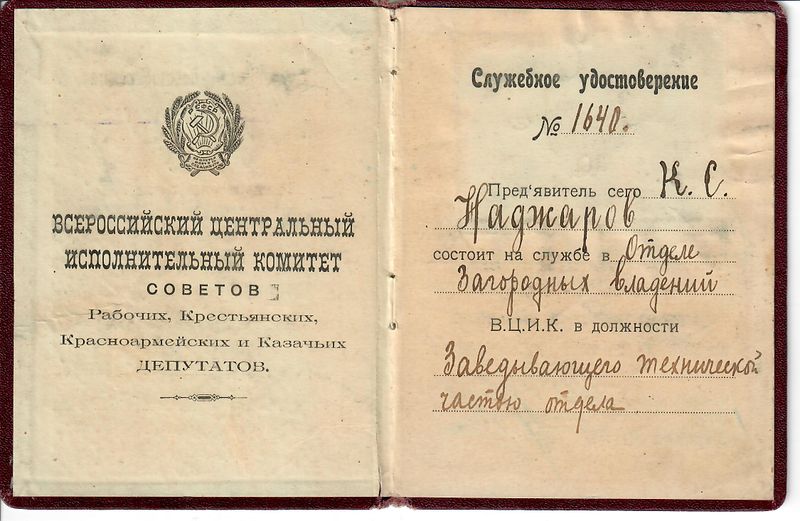 Р.С.Ф.С.Р.
ВСЕРОССИЙСКИЙ ЦЕНТРАЛЬНЫЙ
ИСПОЛНИТЕЛЬНЫЙ КОМИТЕТ
СОВЕТОВ
Рабочих, Крестьянских,
Красноармейских и Казачьих
ДЕПУТАТОВ.
Служебное удостоверение
№ 1640.
Пред'явитель сего К. С.
Наджаров
состоит на службе в Отделе
Загородных владений
В.Ц.И.К. в должности
Заведывающего технической
частью отдела